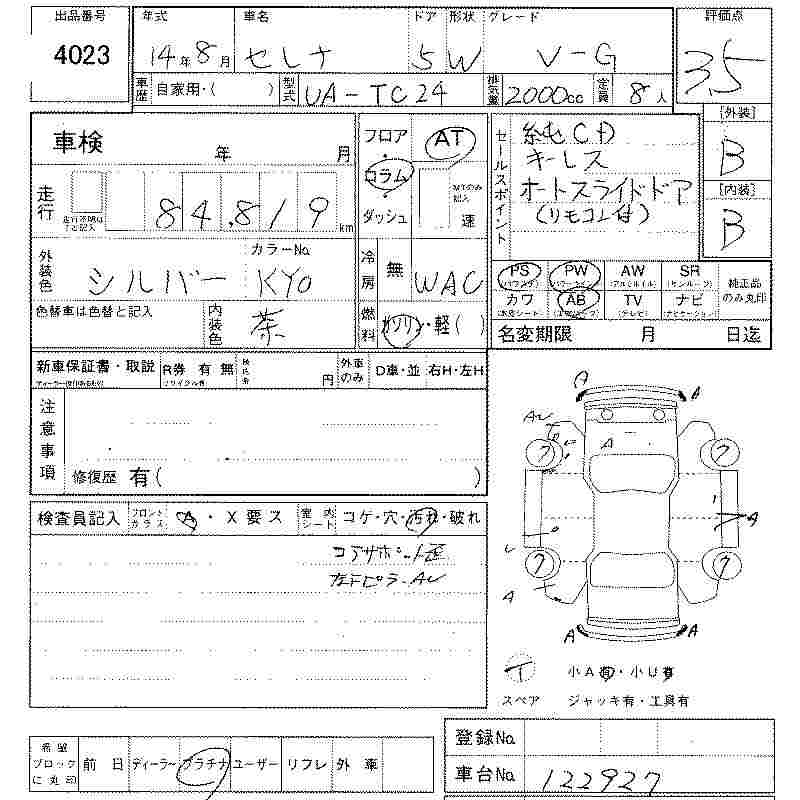 出品番号 年式 車名 ドア 形状 グレード 評価点
4023 14年8月 セレナ 5 W V-G 3.5
車歴 自家用・( ) 型式 UA-TC24 排気量 2000cc 定員 8人
[外装]
B
[内装]
B
車検 年 月
フロア AT
コラム
ダッシュ 速
セールスポイント 純正CD
キーレス
オートスライドドア
(リモコン付)
走行 84,819 km
外装色 シルバー カラーNo KY0
冷房 無 WAC
色替車は色替と記入 内装色 茶
燃料 ガソリン・軽( )
PS PW AW SR 純正品
(パワステ) (パワーウィンド) (アルミホイル) (サンルーフ) のみ丸印
カワ AB TV ナビ
(本皮シート) (エアバッグ) (テレビ) (ナビゲーション)
名変期限 月 日迄
新車保証書・取説 R券 有 無 円 外車のみ D車・並 右H・左H
注意事項
修復歴 有( )
検査員記入 フロントガラス A・X要ス 室内シート コゲ・穴・汚れ・破れ
コアサポート歪
左Fピラー AU
A A
AU
A
A
A
A A
小A有・小U有
スペア ジャッキ有・工具有
希望ブロックに丸印 前日 ディーラー プラチナ ユーザー リフレ 外車
登録No
車台No 122927